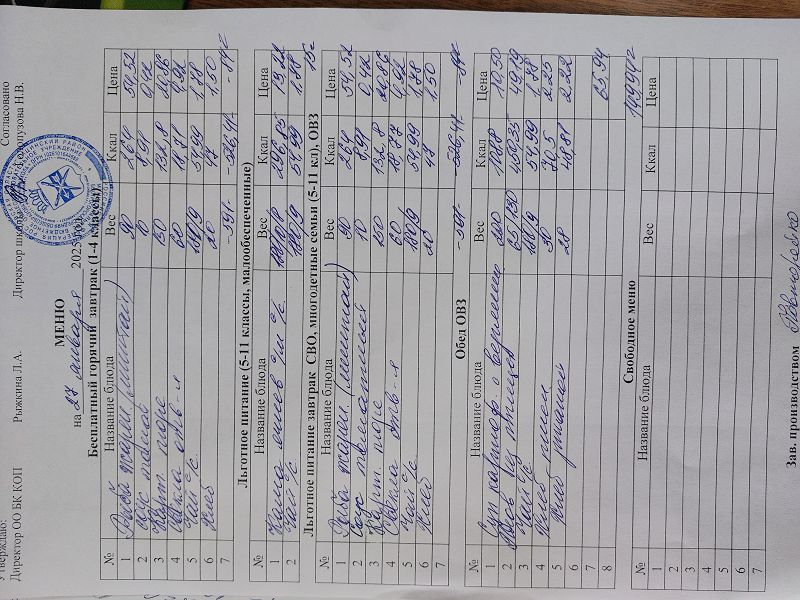 Утверждаю:
Согласовано
Директор ОО БК КОП Рыжкина Л.А. Директор школы Холопузова Н.В.
МЕНЮ
на 27 января 2025 год
Бесплатный горячий завтрак (1-4 классы)
№ Название блюда Вес Ккал Цена
1 Рыба жарен (минтай) 90 264 54,52
2 Соус томат 10 8,91 0,42
3 Карт. пюре 150 132.8
4 Свекла отв-я 60 18,78 4,92
5 Чай с/с 180/9 54,99 1.88
6 Хлеб 20 47 1.50
7 -591- -526,41-
Льготное питание (5-11 классы, малообеспеченные)
№ Название блюда Вес Ккал Цена
1 Каша с/м с/с 13,22
2 Чай с/с 180/9 54,99 1.88
15=
Льготное питание завтрак СВО, многодетные семьи (5-11 кл), ОВЗ
№ Название блюда Вес Ккал Цена
1 Рыба жарен (минтай) 90 264 54,52
2 Соус томатный 10 8,91 0,42
3 Карт. пюре 150 132.8
4 Свекла отв-я 60 18,78 4.92
5 Чай с/с 180/9 54,99 1.88
6 Хлеб 20 47 1.50
7
-591- -526,41-
Обед ОВЗ
№ Название блюда Вес Ккал Цена
1 Суп картоф с вермишел 200 10.50
2 из птицы 450,35 49,19
3 Чай с/с 180/9 54,99 1.88
4 Хлеб пшен 30 70,5 2.25
5 Хлеб ржаной 28 48,81 2.22
6
7
8 65,94
Свободное меню
149,94=
№ Название блюда Вес Ккал Цена
1
2
3
4
5
6
7
Зав. производством